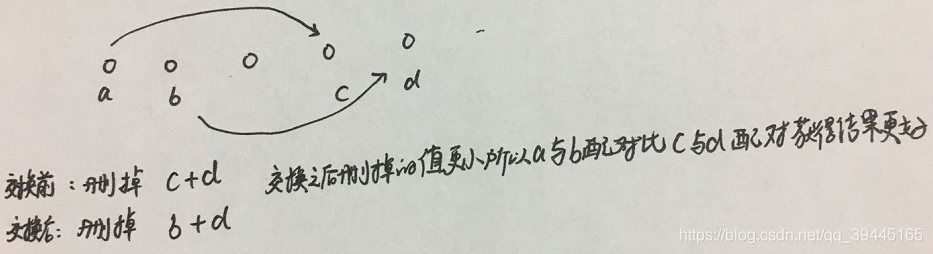 a b c d
交换前：删掉 c+d 交换之后删掉的值更小所以a与b配对比c与d配对获得结果更好
交换后：删掉 b+d
https://blog.csdn.net/qq_39445165